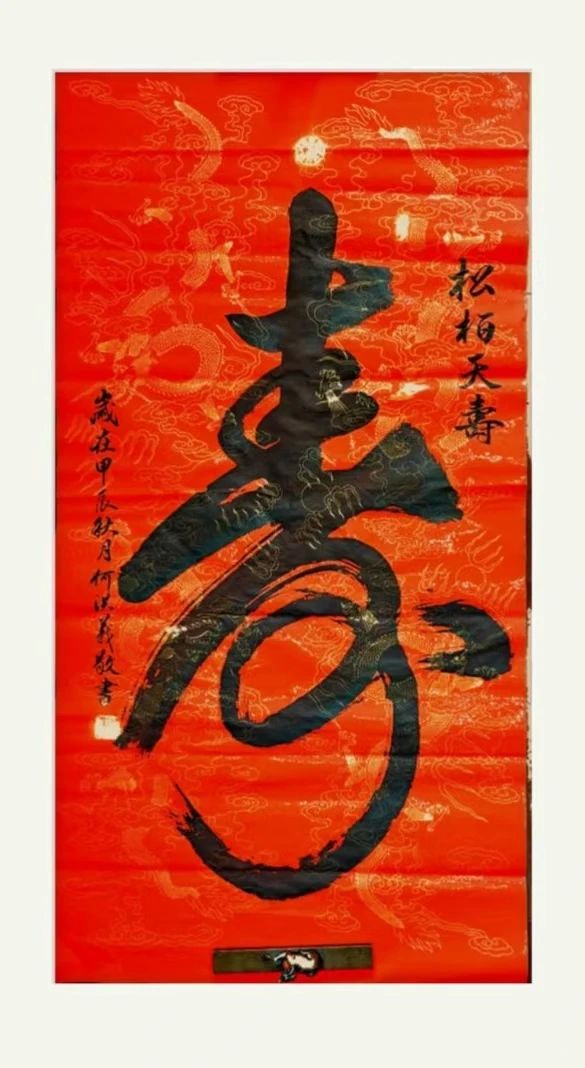 松柏天壽
寿
歲在甲辰秋月何洪義敬書